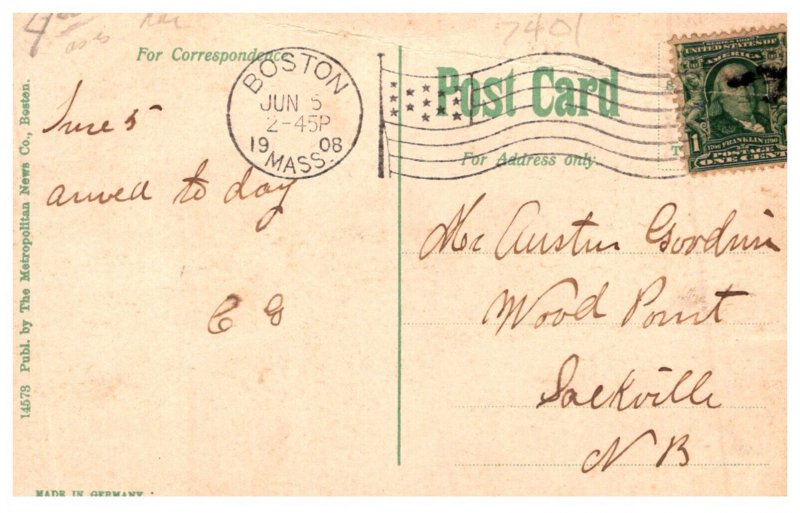 7401
For Correspondence
BOSTON
JUN 5
2-45P
1908
MASS.
Post Card
For Address only.
SERIES 1902
UNITED STATES OF AMERICA
1706 FRANKLIN 1790
POSTAGE
1 ONE CENT
June 5
arived to day
C G
Mr Austin Goodwin
Wood Point
Sackville
N B
14573 Publ. by The Metropolitan News Co., Boston.
MADE IN GERMANY